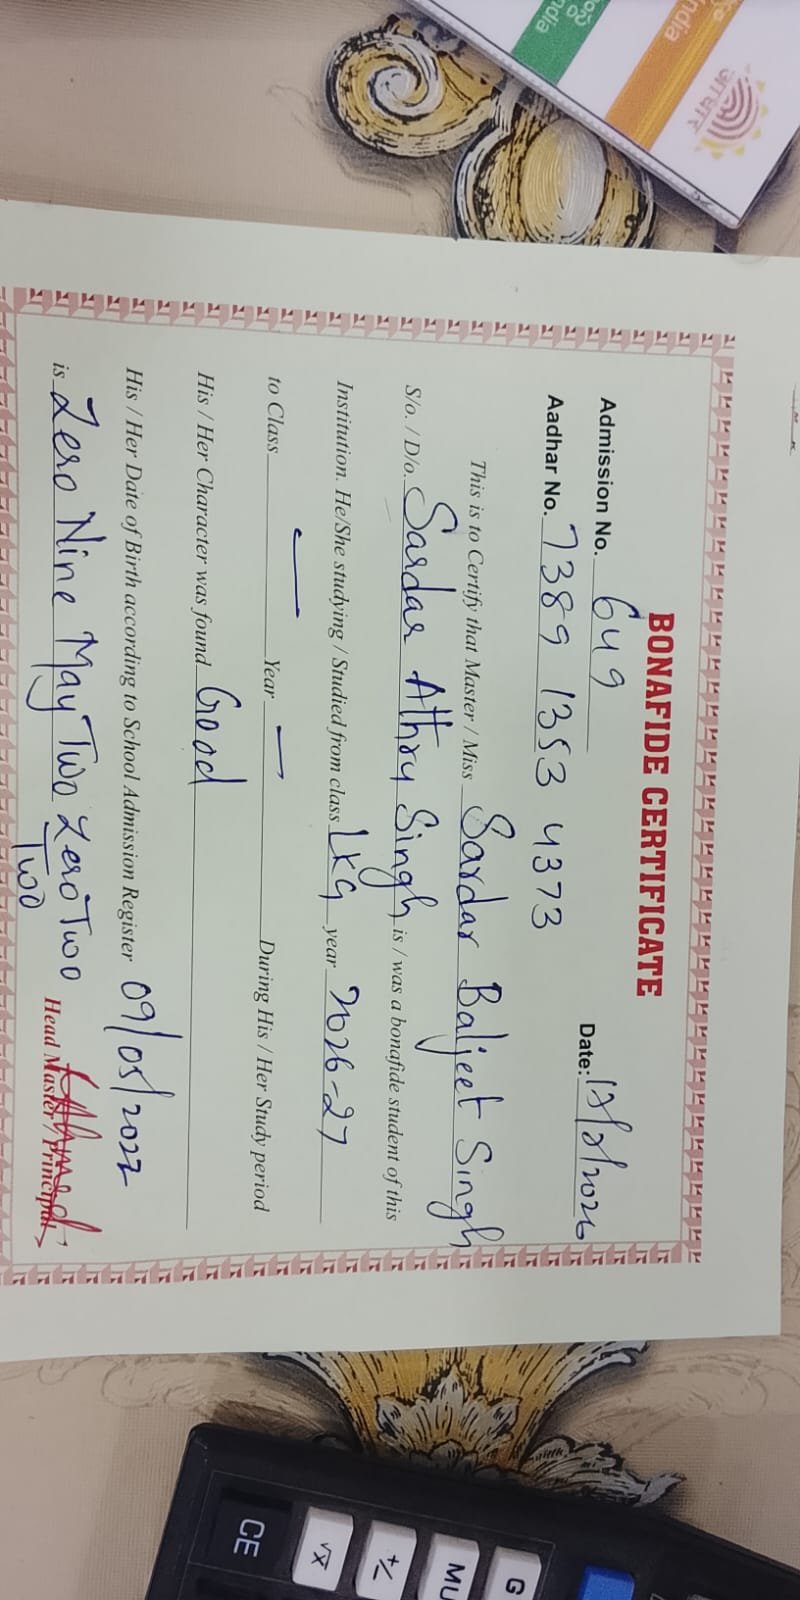 BONAFIDE CERTIFICATE
Admission No. 649 Date: 12/2/2026
Aadhar No. 7389 1353 4373
This is to Certify that Master / Miss Sardar Baljeet Singh
S/o. / D/o. Sardar Athru Singh is / was a bonafide student of this
Institution. He/She studying / Studied from class LKG year 2026-27
to Class — Year — During His / Her Study period
His / Her Character was found Good
His / Her Date of Birth according to School Admission Register 09/05/2022
is Zero Nine May Two Zero Two
Two
Head Master / Principal
आधार
India
CE
√x
+/-
MU
G